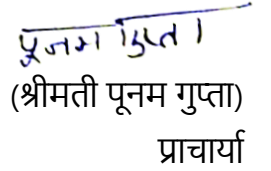 पूनम गुप्ता
(श्रीमती पूनम गुप्ता)
प्राचार्या